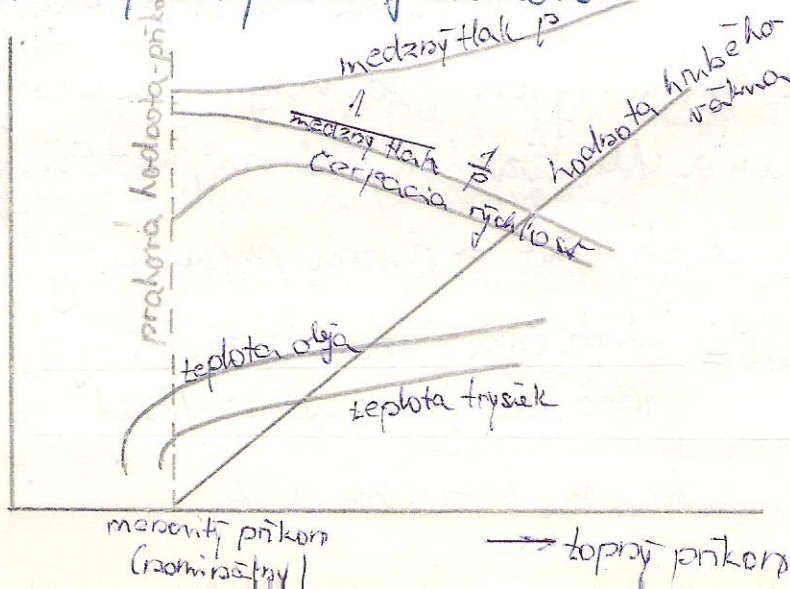 prahová hodnota příko
medzný tlak p
1
medzný tlak
1
p
čerpacia rýchlosť
hodnota hrubého
vákua
teplota oleja
teplota trysiek
menovitý príkon
(nominálny)
topný príkon